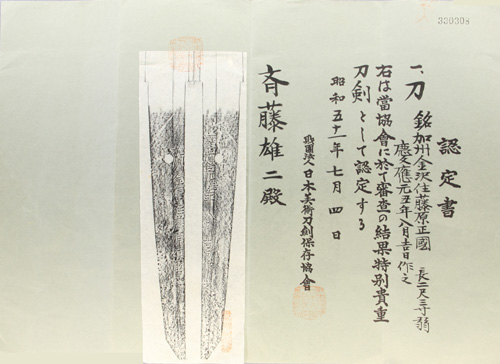 330308
認定書
一、刀 銘 加州金沢住藤原正國 長二尺三寸弱
年八月吉日作之
右は當協會に於て審査の結果特別貴重
刀劍として認定する
昭和五十一年七月四日
財團法人日本美術刀劍保存協會
斉藤雄二殿